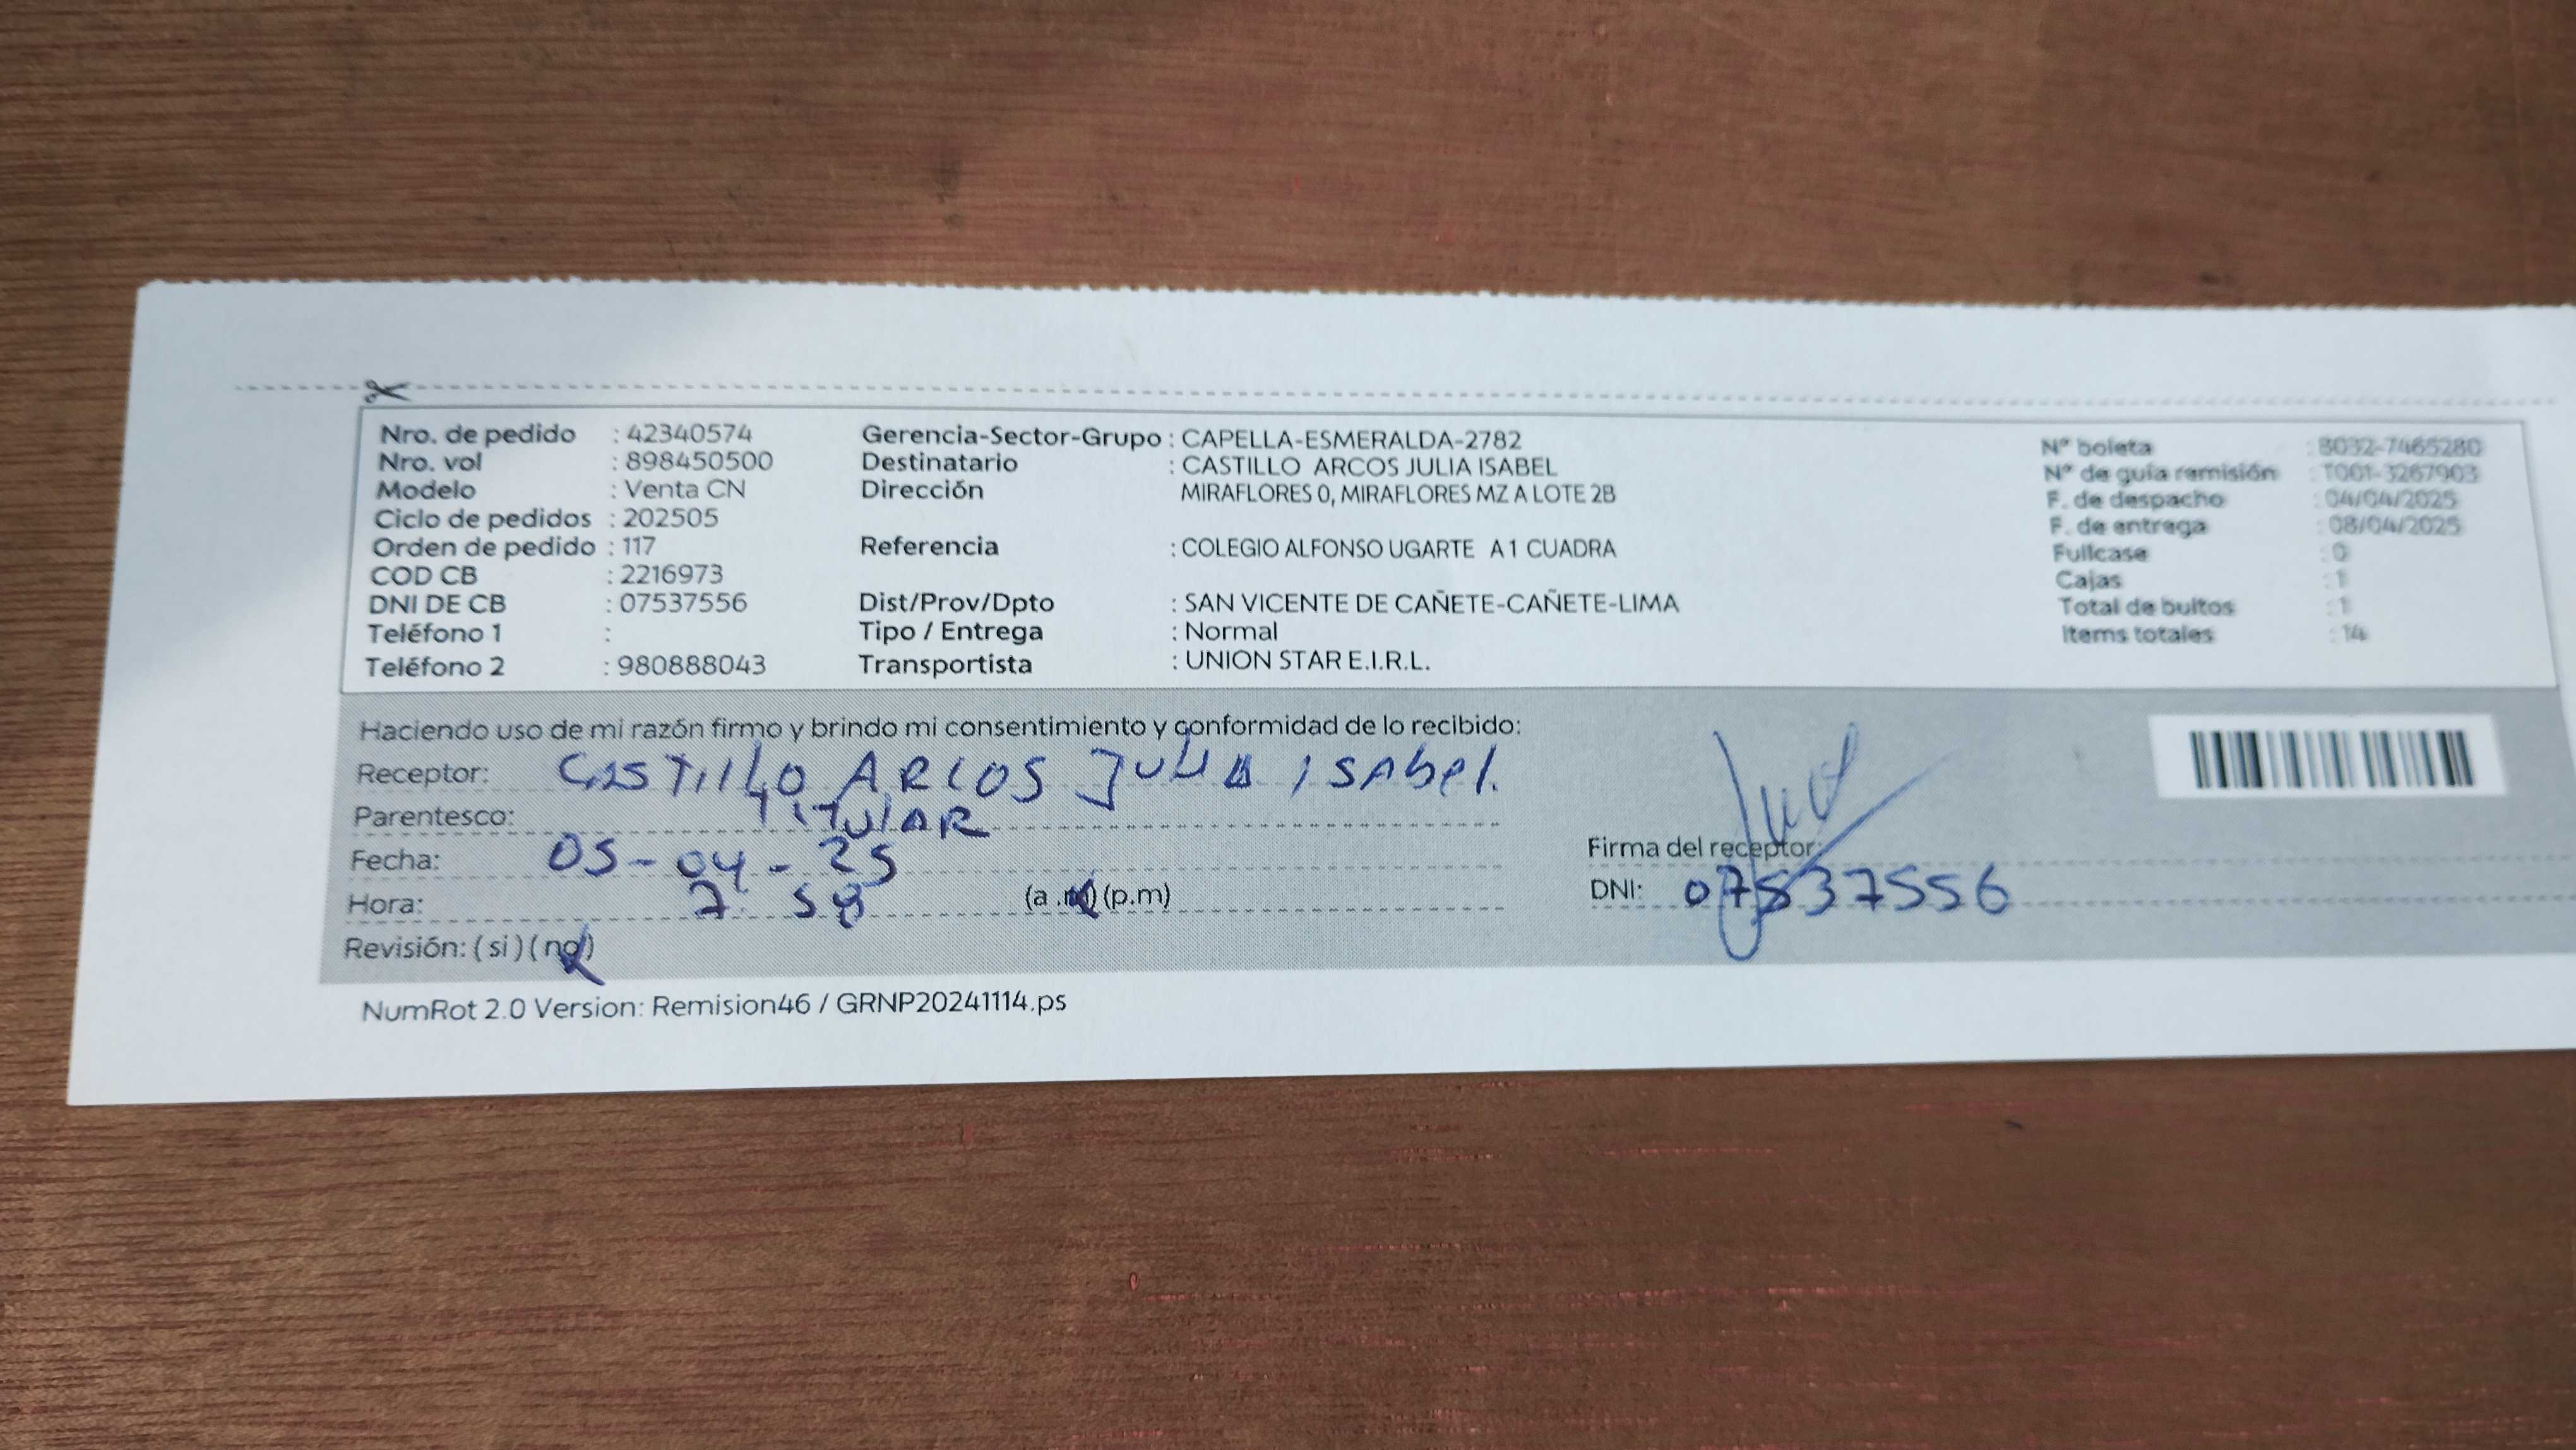 Nro. de pedido : 42340574
Nro. vol : 898450500
Modelo : Venta CN
Ciclo de pedidos : 202505
Orden de pedido : 117
COD CB : 2216973
DNI DE CB : 07537556
Teléfono 1 :
Teléfono 2 : 980888043
Gerencia-Sector-Grupo : CAPELLA-ESMERALDA-2782
Destinatario : CASTILLO ARCOS JULIA ISABEL
Dirección MIRAFLORES 0, MIRAFLORES MZ A LOTE 2B
Referencia : COLEGIO ALFONSO UGARTE A 1 CUADRA
Dist/Prov/Dpto : SAN VICENTE DE CAÑETE-CAÑETE-LIMA
Tipo / Entrega : Normal
Transportista : UNION STAR E.I.R.L.
N° boleta : B032-7465280
N° de guía remisión : T001-3267903
F. de despacho : 04/04/2025
F. de entrega : 08/04/2025
Fullcase : 0
Cajas : 1
Total de bultos : 1
Items totales : 14
Haciendo uso de mi razón firmo y brindo mi consentimiento y conformidad de lo recibido:
Receptor: CASTILLO ARCOS JULIA ISAbel.
Parentesco: TITULAR
Fecha: 05-04-25
Hora: 7 58 (a.m) (p.m)
Revisión: (si) (no)
Firma del receptor:
DNI: 07537556
NumRot 2.0 Version: Remision46 / GRNP20241114.ps